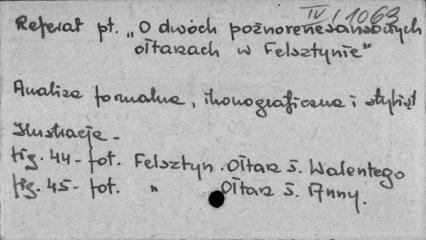 IV/1063
Referat pt. „O dwóch późnorenesansowych
ołtarzach w Felsztynie"
Analiza formalna, ikonograficzna i
Ilustracje -
fig. 44 - fot. Felsztyn. Ołtarz ś. Walentego
fig. 45 - fot. " Ołtarz ś. Anny.